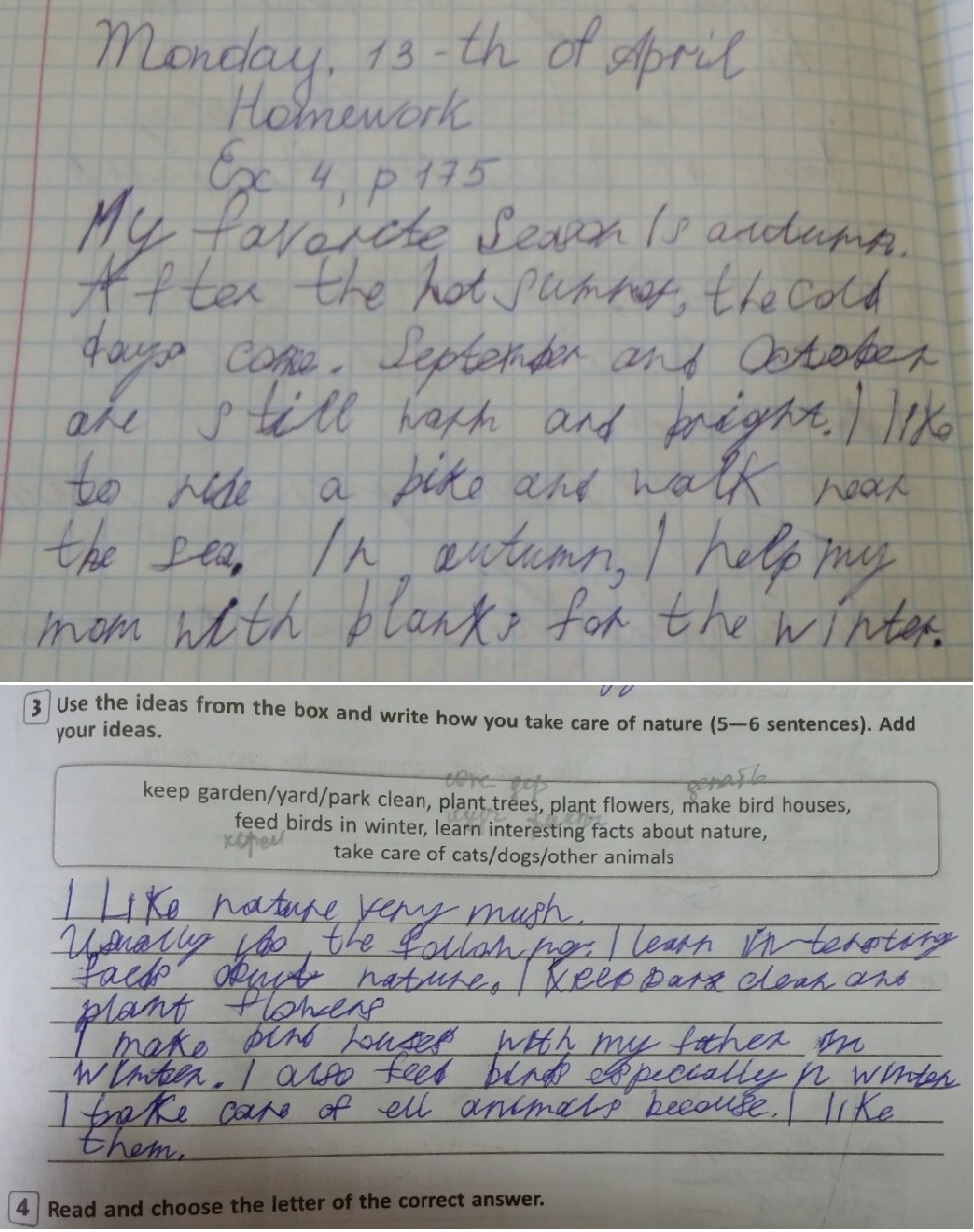 Monday, 13-th of April
Homework
Ex 4, p 175
My favorite season is autumn.
After the hot summer, the cold
days come. September and October
are still warm and bright. I like
to ride a bike and walk near
the sea. In autumn, I help my
mom with blanks for the winter.
3 Use the ideas from the box and write how you take care of nature (5—6 sentences). Add
your ideas.
keep garden/yard/park clean, plant trees, plant flowers, make bird houses,
feed birds in winter, learn interesting facts about nature,
take care of cats/dogs/other animals
I Like nature very mush.
Usually the following: I learn interesting
facts about nature. I keep park clean and
plant flowers
I make bird houses with my father in
winter. I also feed birds especially in winter
I trake care of ell animals becouse. I like
them.
4 Read and choose the letter of the correct answer.